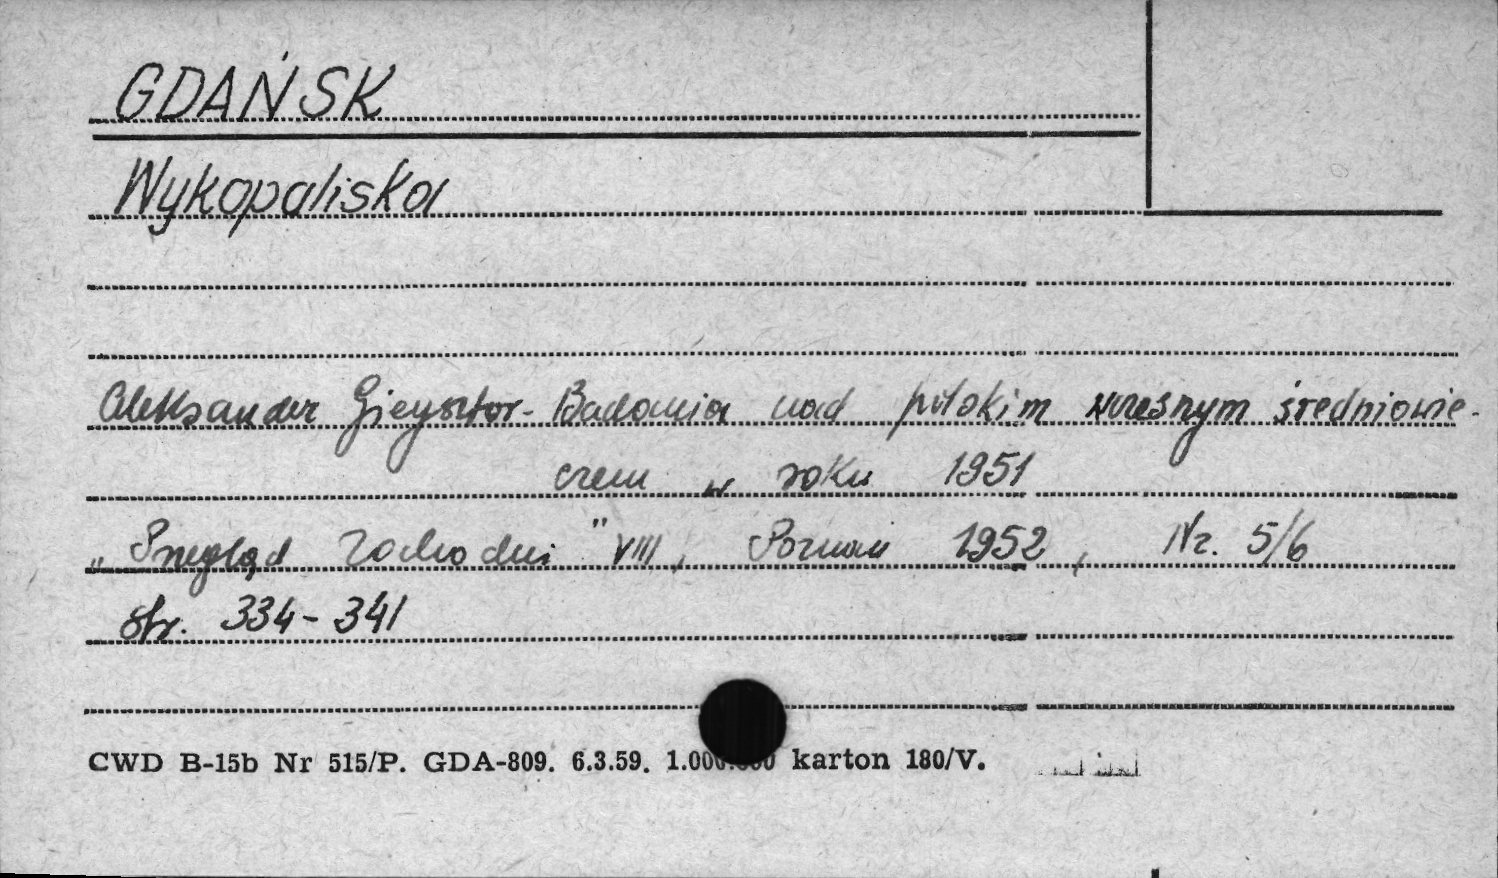 GDAŃSK
Wykopaliska
Aleksander Gieysztor - Badania nad polskim wczesnym średniowie-
czem w roku 1951
"Przegląd Zachodni" VIII, Poznań 1952, Nr. 5/6
str. 334-341
CWD B-15b Nr 515/P. GDA-809. 6.3.59. 1.000.000 karton 180/V.